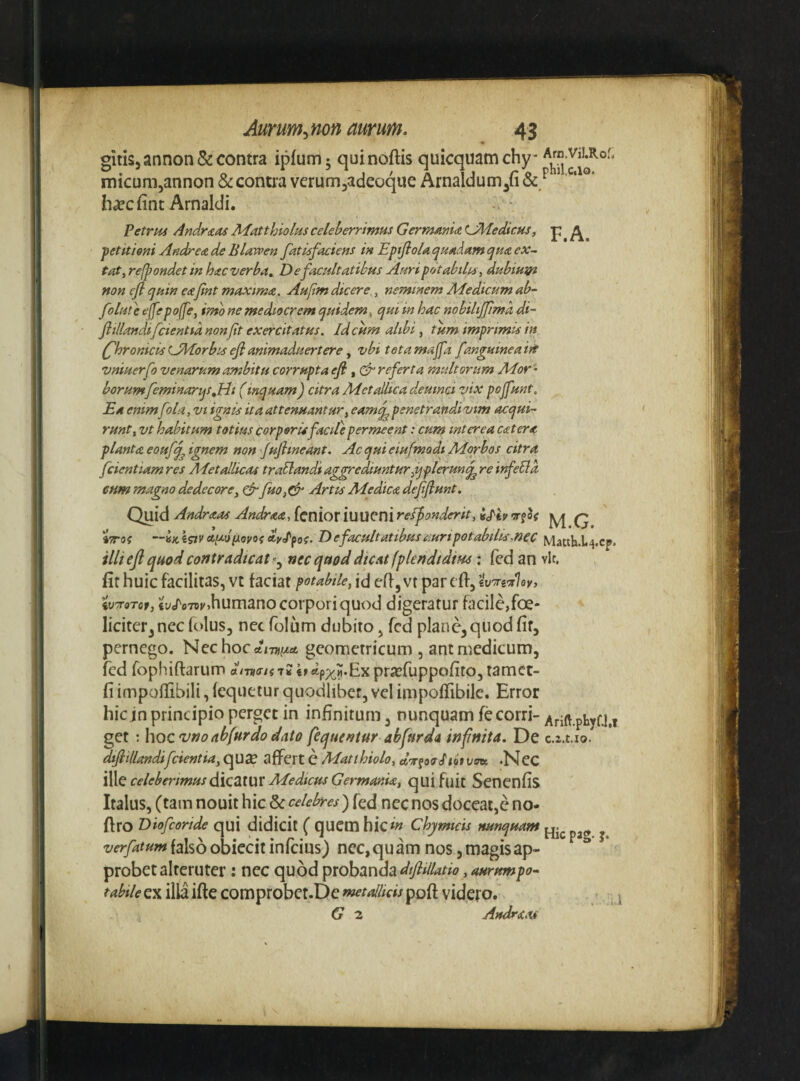 Aurum, non aurum. 43
gitis, annon & contra ipsum; qui nostis quicquam chy- Arn.Vil.Ros.
micum, annon & contra verum, adeoque Arnaldum, si & phil.c.10.
hæc sint Arnaldi.
Petrus Andræas Matthiolus celeberrimus Germaniæ Medicus, F. A.
petitioni Andreæ de Blawen satisfaciens in Epistola quadam quæ ex-
tat, respondet in hæc verba. De facultatibus Auri potabilis, dubium
non est quin eæ sint maximæ. Ausim dicere, neminem Medicum ab-
solute esse posse, imo ne mediocrem quidem, qui in hac nobilissima di-
stillandi scientia non sit exercitatus. Id cum alibi, tum imprimis in
Chronicis Morbis est animaduertere, vbi tota massa sanguinea in
vniuerso venarum ambitu corrupta est, & referta multorum Mor-
borum seminarijs. Hi (inquam) citra Metallica deuinci vix possunt.
Ea enim sola, vi ignis ita attenuantur, eamq; penetrandi vim acqui-
runt, vt habitum totius corporis facile permeent: cum interea cæteræ
plantæ eousq; ignem non sustineant. Ac qui eiusmodi Morbos citra
scientiam res Metallicas tractandi aggrediuntur, ij plerunq; re infecta
cum magno dedecore, & suo, & Artis Medicæ desistunt.
Quid Andræas Andreæ, senior iuueni responderit, M. G.
De facultatibus auri potabilis. nec Matth.L4.ep.
illi est quod contradicat, nec quod dicat splendidius: sed an vlt.
sit huic facilitas, vt faciat potabile, id est, vt par est,
humano corpori quod digeratur facilè, fœ-
liciter, nec solus, nec solùm dubito, sed planè, quod sit,
pernego. Nec hoc αἴτημα geometricum, ant medicum,
sed sophistarum Ex præsupposito, tamet-
si impossibili, sequetur quodlibet, vel impossibile. Error
hic in principio perget in infinitum, nunquam se corri- Arist.phys.l.1
get: hoc vno absurdo dato sequentur absurda infinita. De c.2.t.10.
distillandi scientia, quæ affert è Matthiolo, . Nec
ille celeberimus dicatur Medicus Germaniæ, qui fuit Senensis
Italus, (tam nouit hic & celebres) sed nec nos doceat, è no-
stro Dioscoride qui didicit (quem hic in Chymicis nunquam Hic pag. 3.
versatum falsò obiecit inscius) nec, quàm nos, magis ap-
probet alteruter: nec quòd probanda distillatio, aurum po-
tabile ex illâ iste comprobet. De metallicis post videro.
G 2 Andræas